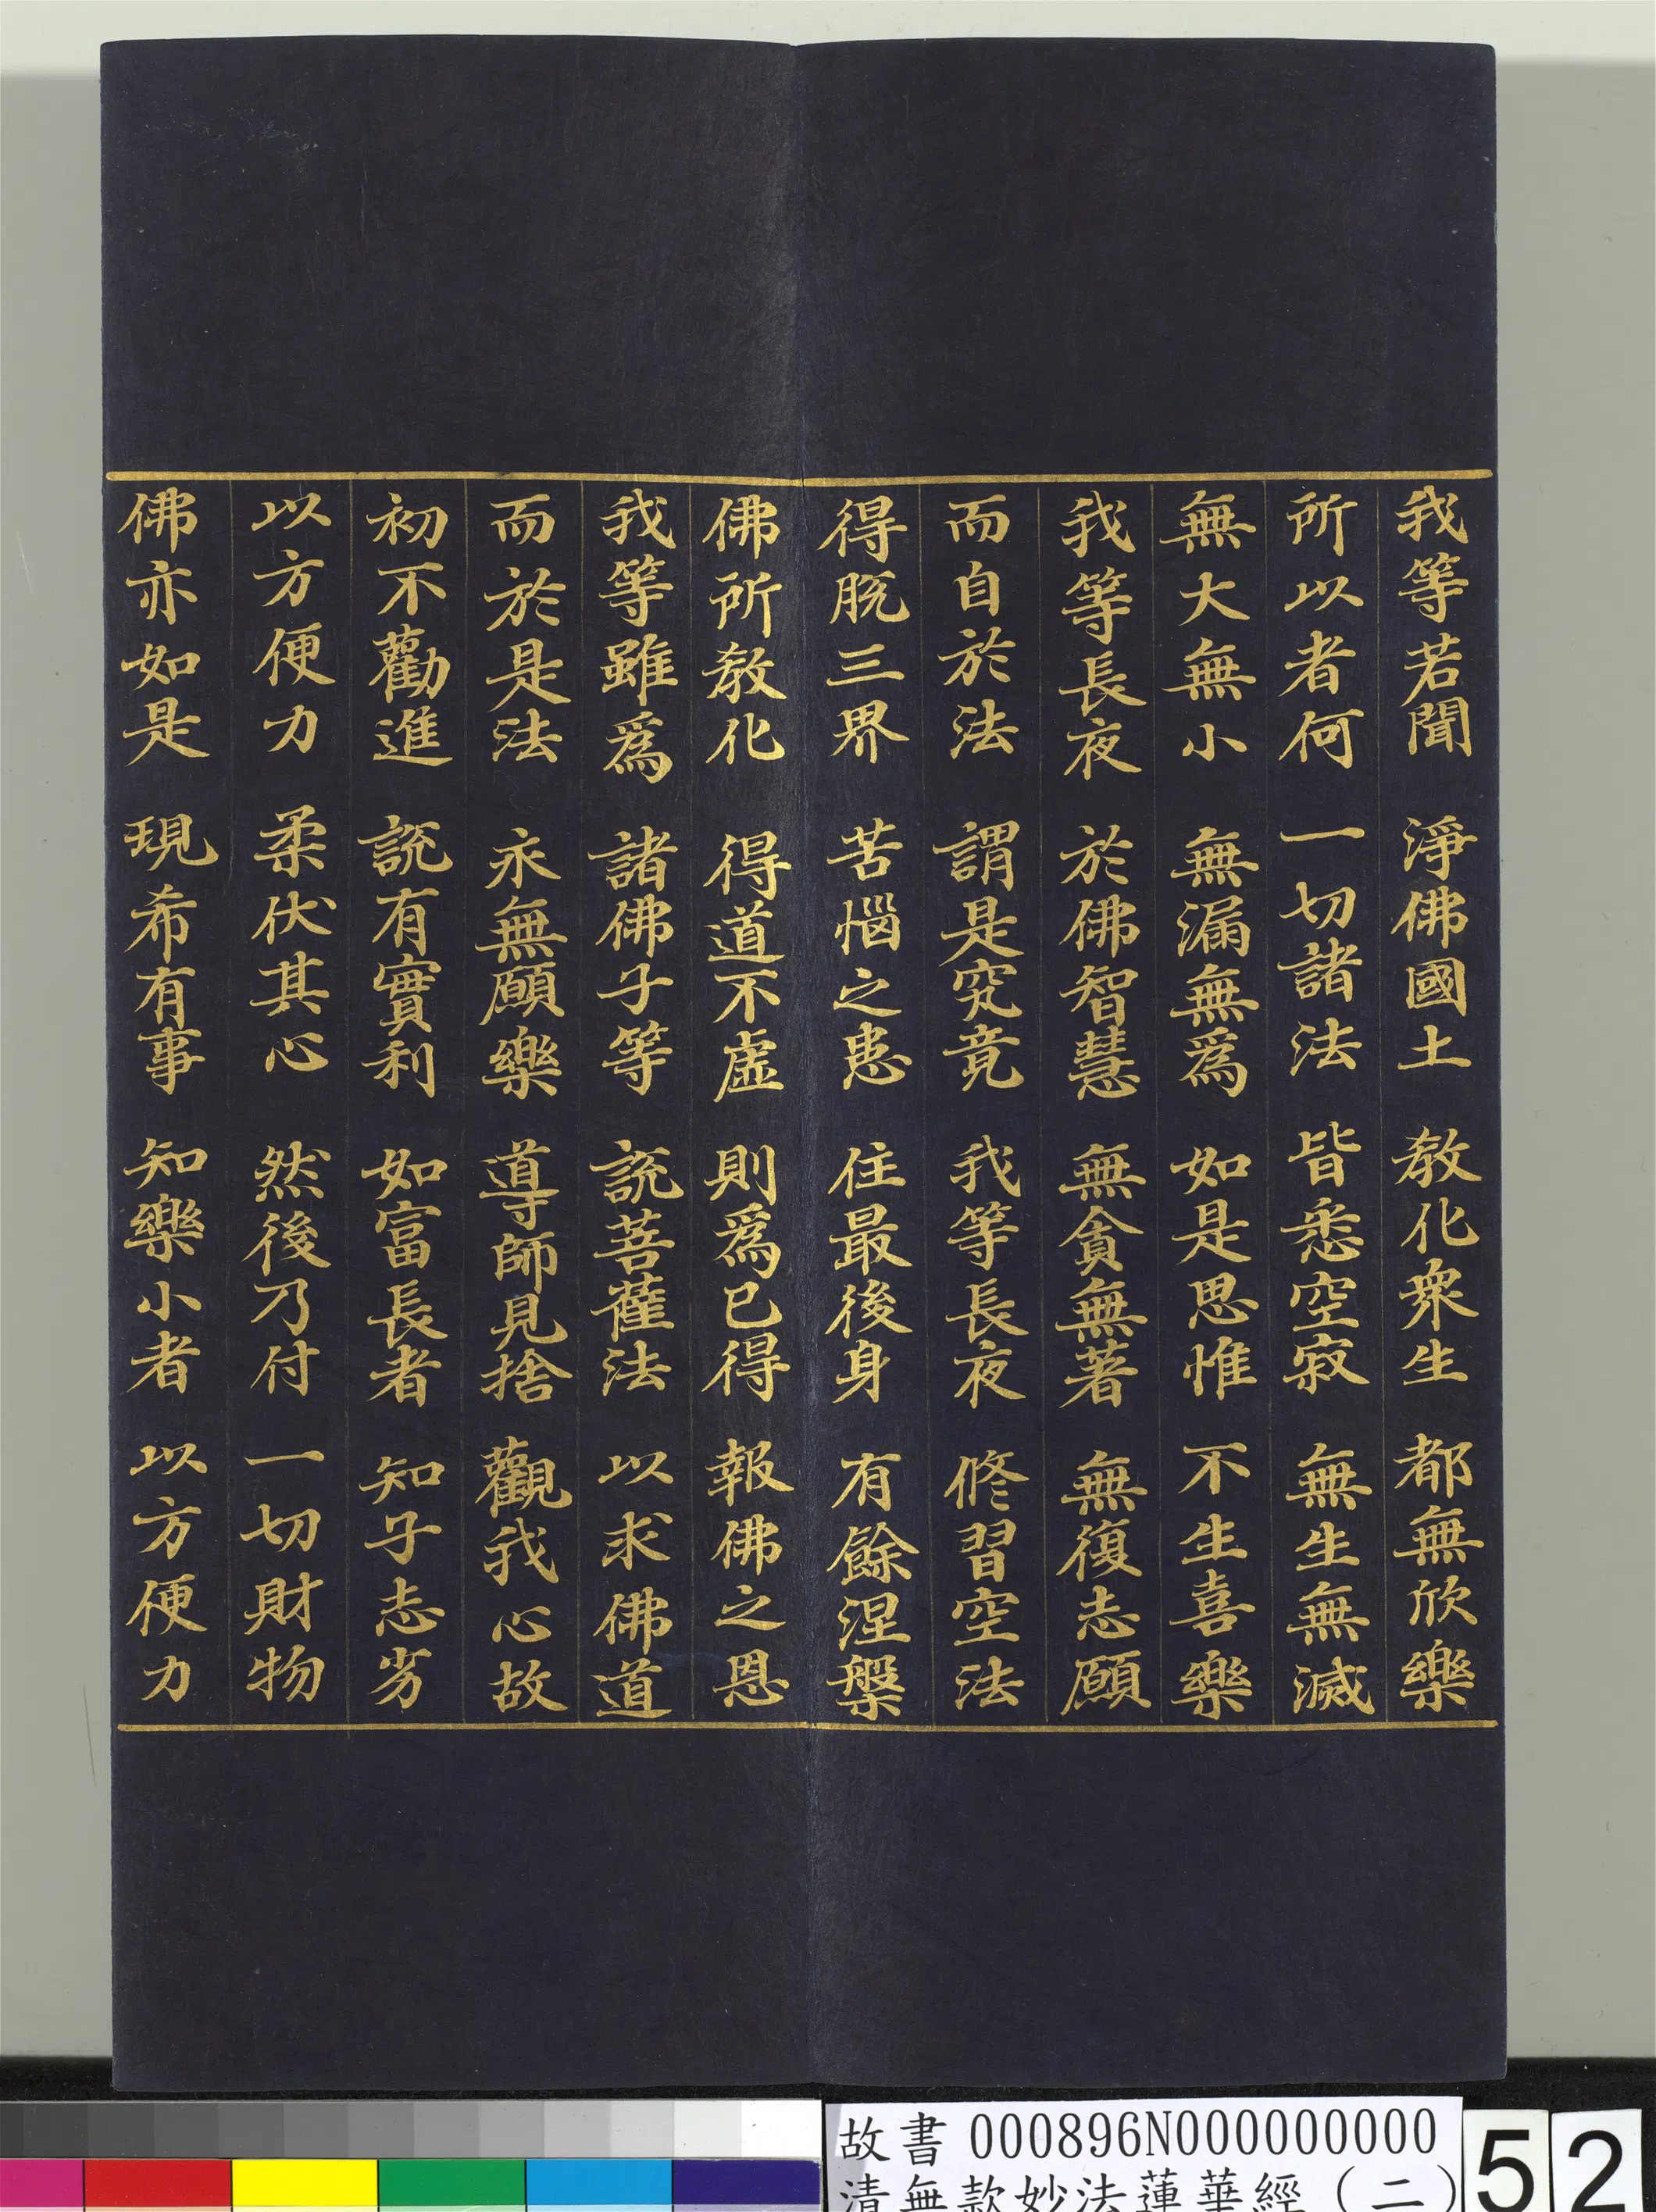 我等若聞 淨佛國土 教化衆生 都無欣樂
所以者何 一切諸法 皆悉空寂 無生無滅
無大無小 無漏無爲 如是思惟 不生喜樂
我等長夜 於佛智慧 無貪無著 無復志願
而自於法 謂是究竟 我等長夜 修習空法
得脫三界 苦惱之患 住最後身 有餘涅槃
佛所教化 得道不虛 則爲已得 報佛之恩
我等雖爲 諸佛子等 說菩薩法 以求佛道
而於是法 永無願樂 導師見捨 觀我心故
初不勸進 說有實利 如富長者 知子志劣
以方便力 柔伏其心 然後乃付 一切財物
佛亦如是 現希有事 知樂小者 以方便力
故書 000896N000000000
清無款妙法蓮華經（二）
52